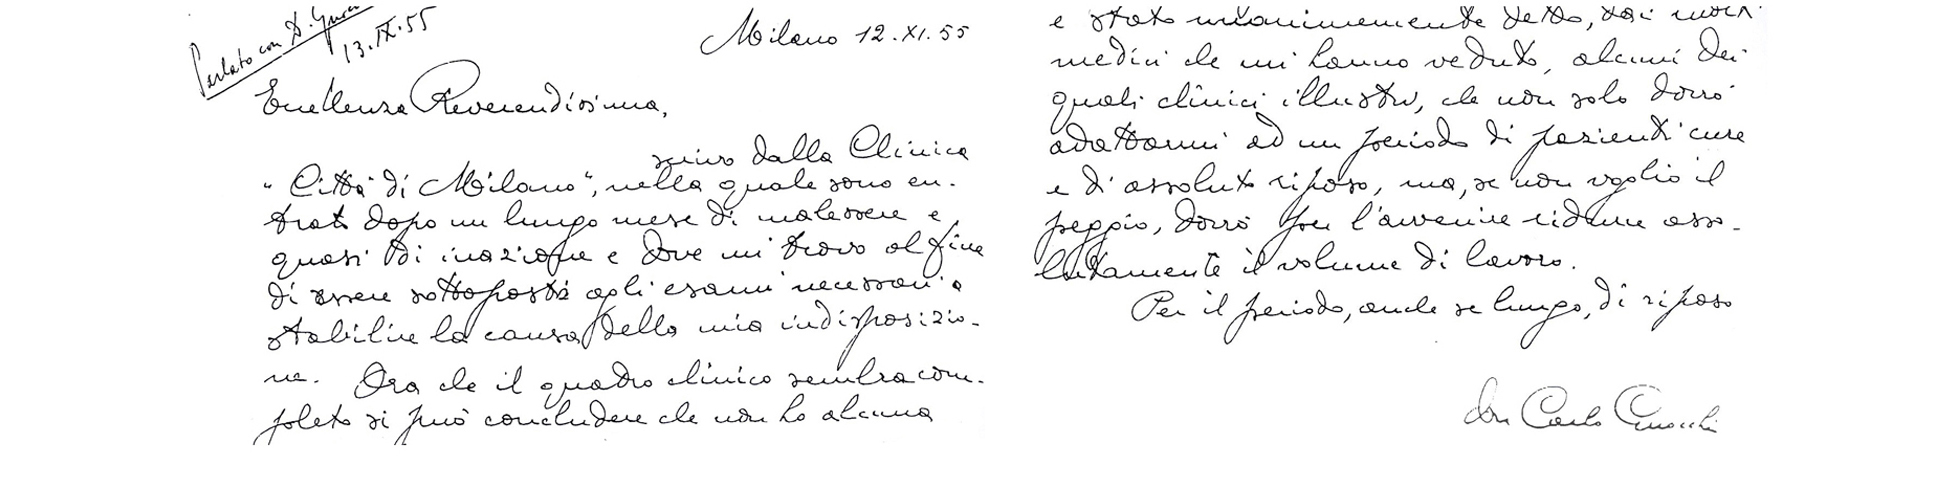 Parlato con D. Gnocchi
13.IX.55
Milano 12.XI.55
Eccellenza Reverendissima,
scrivo dalla Clinica
"Città di Milano", nella quale sono en-
trato dopo un lungo mese di malessere e
quasi di inazione e dove mi trovo al fine
di essere sottoposto agli esami necessari a
stabilire la causa della mia indisposizio-
ne. Ora che il quadro clinico sembra com-
pleto si può concludere che non ho alcuna
e stato unanimemente detto, dai molti
medici che mi hanno veduto, alcuni dei
quali clinici illustri, che non solo dovrò
adattarmi ad un periodo di pazienti cure
e di assoluto riposo, ma, se non voglio il
peggio, dovrò per l'avvenire ridurre asso-
lutamente il volume di lavoro.
Per il periodo, anche se lungo, di riposo
don Carlo Gnocchi